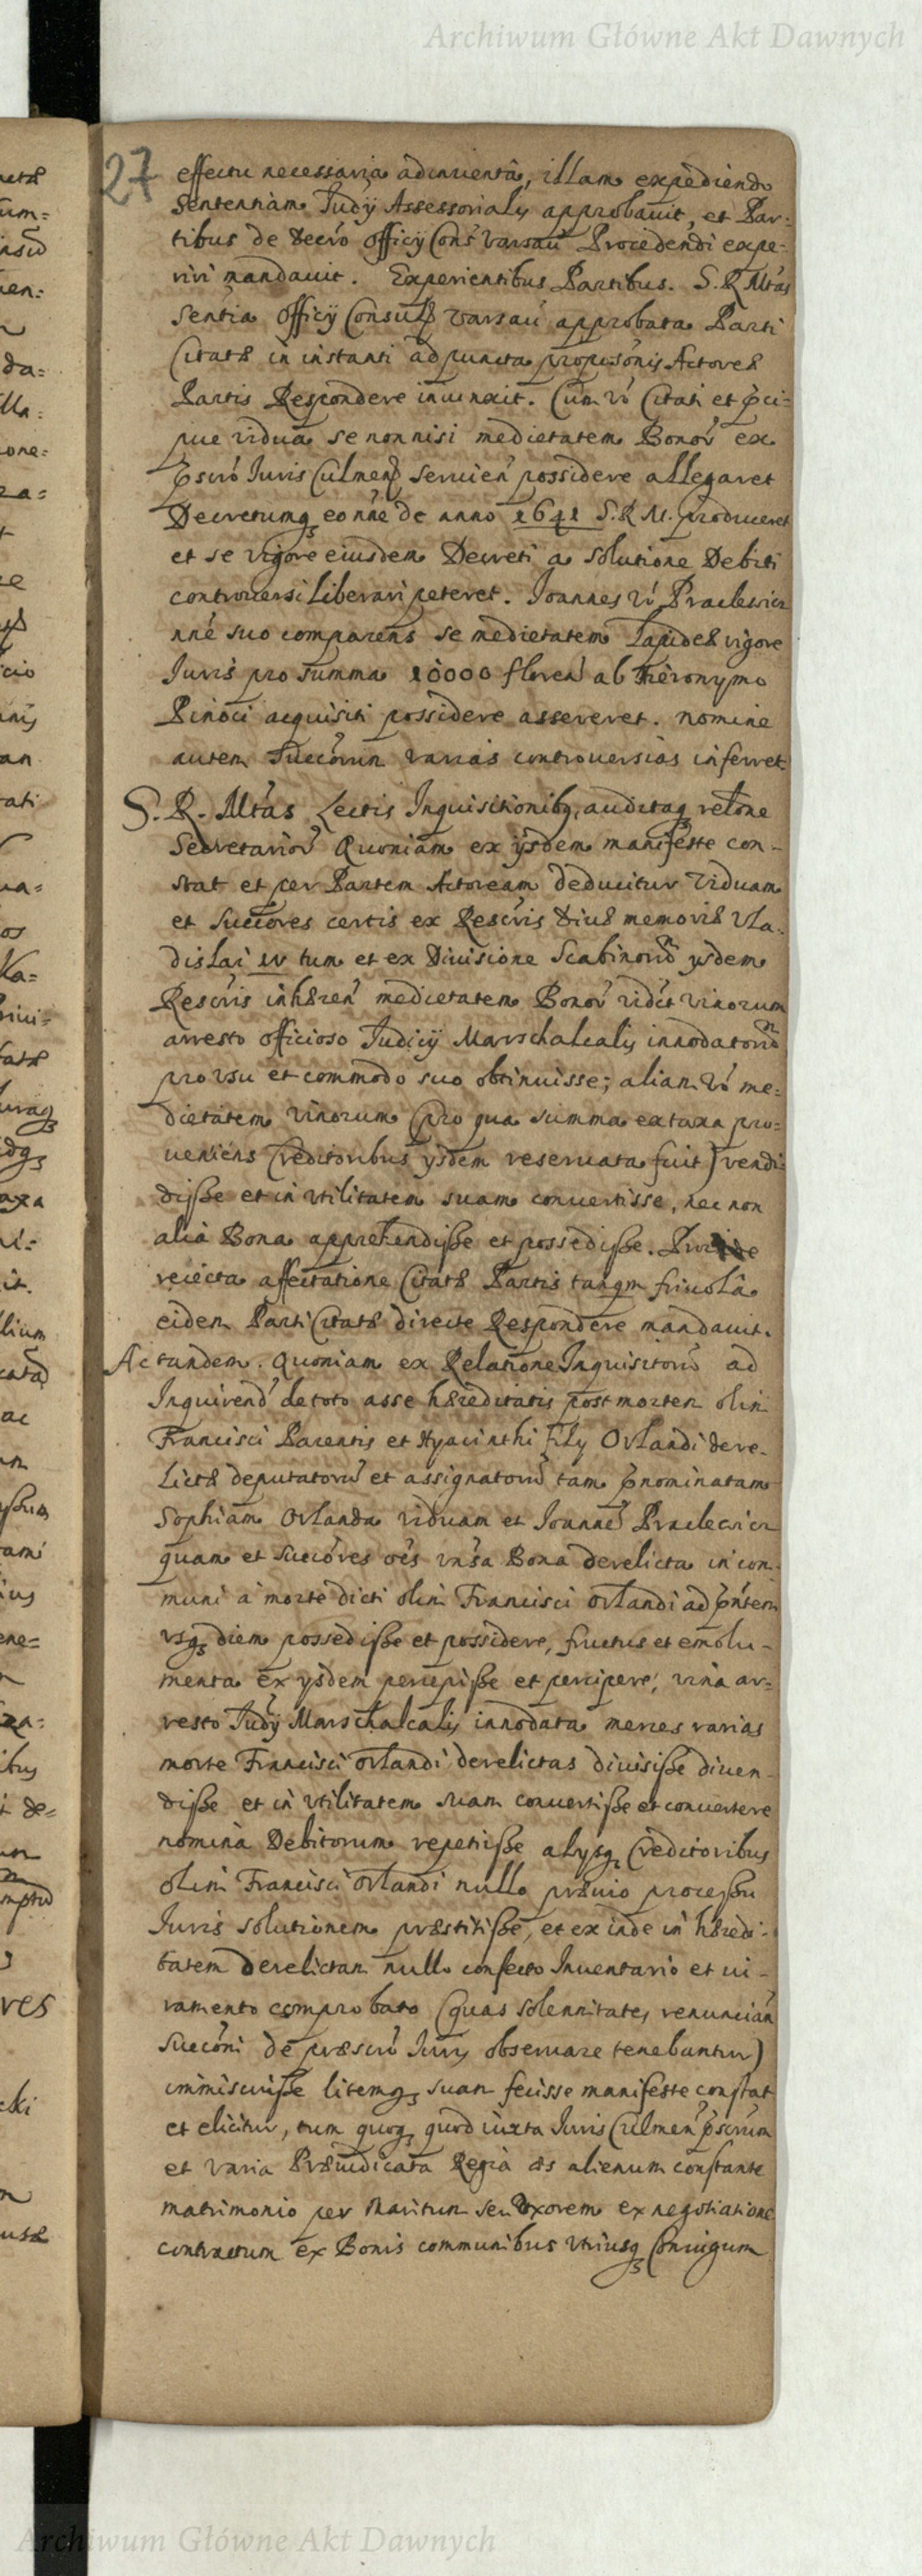 Archiwum Główne Akt Dawnych
27
effectu necessaria adinuentâ, illam expediendo
Sententiam Judÿ Assessorialis approbauit, et Par-
tibus de decro Officÿ Cons Varsau Procedendi expe-
riri mandauit. Experientibus Partibus. S. R. Mtas
Sentia Officÿ Consul Varsau approbata Parti
Citatæ in instanti ad puncta propositionis Actoreæ
Partis Respondere iniunxit. Cum vo Citati et pci-
pue vidua se non nisi medietatem Bonor ex
pscro Iuris Culmen seruien possidere allegaret
Decretumq eo nne de anno 1641 S. R. M. produceret
et se vigore eiusdem Decreti a solutione Debiti
controuersi liberari peteret. Joannes vo Praclewicz
nné suo comparens se medietatem Lapideæ vigore
Iuris pro summa 10000 floren ab Hieronymo
Pinoci acquisiti possidere assereret. nomine
autem Succorum varias controuersias inferret.
S. R. Mtas Lectis Inquisitionibq, auditaq retone
Secretarior Quoniam ex ÿsdem manifeste con-
stat et per Partem Actoream deducitur Viduam
et Succores certis ex Rescris diuæ memoriæ Vla-
dislai IV tum et ex Diuisione Scabinoru ysdem
Rescris inhæren medietatem Bonor vidct vinorum
arresto officioso Judicÿ Marschalcalis innodatoru
pro vsu et commodo suo obtinuisse; aliam vo me-
dietatem vinorum (pro qua summa ex taxa pro-
ueniens Creditoribus ysdem reseruata fuit) vendi-
disse et in vtilitatem suam conuertisse, nec non
alia Bona apprehendisse et possedisse. Proinde
reiecta affectatione Citatæ Partis tanqm friuolâ
eidem Parti Citatæ directe Respondere mandauit.
Ac tandem. Quoniam ex Relatione Inquisitoru ad
Inquirend de toto asse hæreditatis post mortem olim
Francisci Parentis et Hyacinthi Fily Orlandi dere-
lictæ deputatoru et assignatoru tam pnominatam
Sophiam Orlanda viduam et Joanne Praclewicz
quam et succores oes vnsa Bona derelicta in com-
muni a morte dicti olim Francisci Orlandi ad pntem
vsq diem possedisse et possidere, fructus et emolu-
menta ex ysdem percepisse et percipere, vina ar-
resto Judÿ Marschalcalis innodata merces varias
morte Francisci Orlandi derelictas diuisisse diuen-
disse et in vtilitatem suam conuertisse et conuertere
nomina Debitorum repetiisse alysq Creditoribus
olim Francisci Orlandi nullo præuio processu
Iuris solutionem præstitisse, et ex inde in hæredi-
tatem derelictam nullo confecto Inuentario et iu-
ramento comprobato (quas solennitates renuncian
Succoni de præscro Iuris obseruare tenebantur)
immiscuisse litemq suam fecisse manifeste constat
et elicitur, tum quoq quod iuxta Iuris Culmen pscrum
et varia Præiudicata Regia æs alienum constante
matrimonio per Maritum seu Vxorem ex negotiatione
contractum ex Bonis communibus vtriusq Coniugum
Archiwum Główne Akt Dawnych